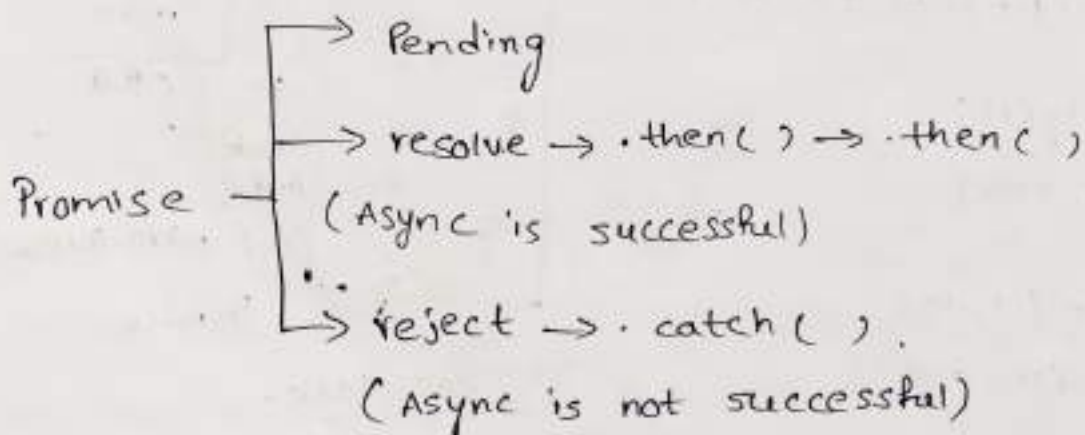 Pending
resolve → .then( ) → .then( )
Promise
(Async is successful)
reject → .catch( ).
(Async is not successful)